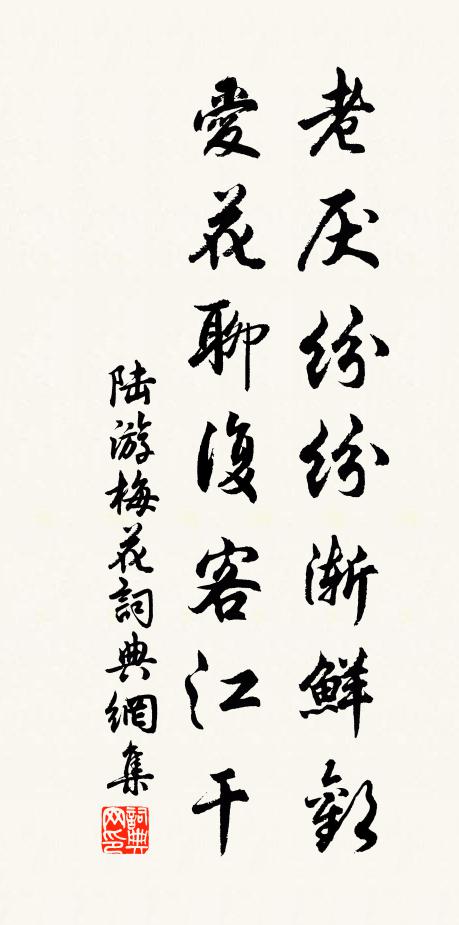 老厌紛紛漸鮮歡
愛花聊復客江干
陆游梅花詞典網集
詞典
网印